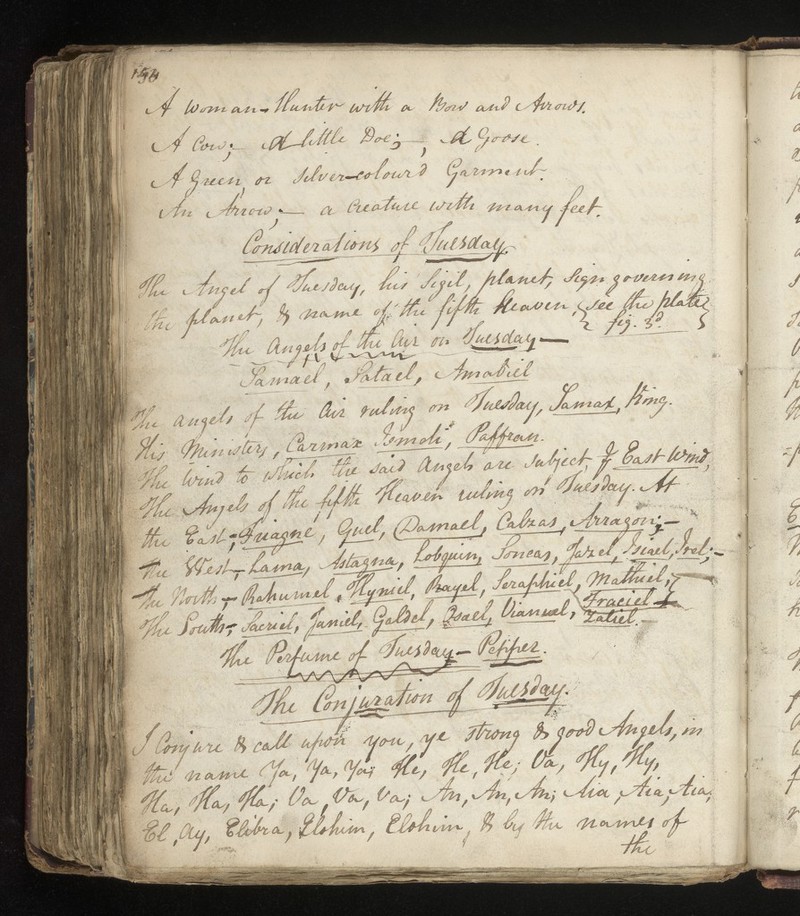 A Woman-Hunter with a Bow and Arrows.
A Cow;— A little Doe;—, A Goose.
A Green or Silver-colour'd Garment.
An Arrow;— a Creature with many feet.
Considerations of Tuesday
The Angel of Tuesday, his Sigil, planet, Sign governing
the planet, & name of the fifth Heaven, see the plate
fig. 3d.
The Angels of the Air on Tuesday—
Samael, Satael, Amabiel
The angels of the Air ruling on Tuesday, Samax, King.
His Ministers, Carmax Ismoli, Paffran.
The Wind to which the said Angels are subject, East Wind,
The Angels of the fifth Heaven ruling on Tuesday. At
the East;— Friagne, Guel, Damael, Calzas, Arragon;—
The West— Lama, Astagna, Lobquin, Soncas, Jazel, Isiael, Irel;—
The North,— Rahumel, Hyniel, Rayel, Seraphiel, Mathiel,
Fraciel
The South;— Sacriel, Janiel, Galdel, Osael, Vianuel, Zaliel.—
The Perfume of Tuesday— Pepper.
The Conjuration of Tuesday.
I Conjure & call upon you, ye strong & good Angels, in
the name Ya, Ya, Ya; He, He, He; Va, Hy, Hy,
Ha, Ha, Ha; Va, Va, Va; An, An, An; Aia, Aia, Aia,
El, Ay, Elibra, Elohim, Elohim, & by the names of
the